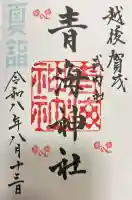 越後賀茂
式内社
青海神社
夏詣
令和八年八月十三日